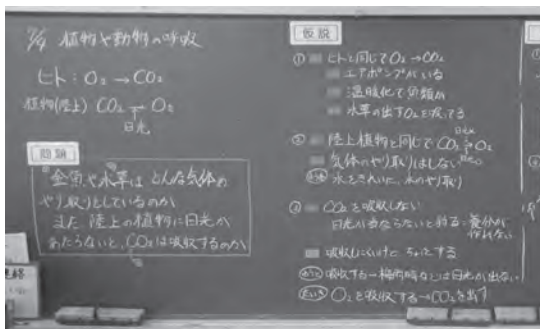 2/4 植物や動物の呼吸
ヒト:O₂→CO₂
植物(陸上) CO₂⇄O₂
日光
問題
金魚や水草は どんな気体の
やり取りをしているのか
また 陸上の植物に日光が
あたらないと、CO₂は吸収するのか
仮説
① ヒトと同じでO₂→CO₂
エアポンプがいる
温暖化で魚類が
水草の出すO₂を吸ってる
② 陸上植物と同じでCO₂ O₂
気体のやり取りはしない
水をきれいに、水のやり取り
③ CO₂を吸収しない
日光があたらないと 養分が
作れない
吸収しにくいけど ちょっとする
吸収する→梅雨時などは日光が出ない
O₂を吸収する→CO₂を出す